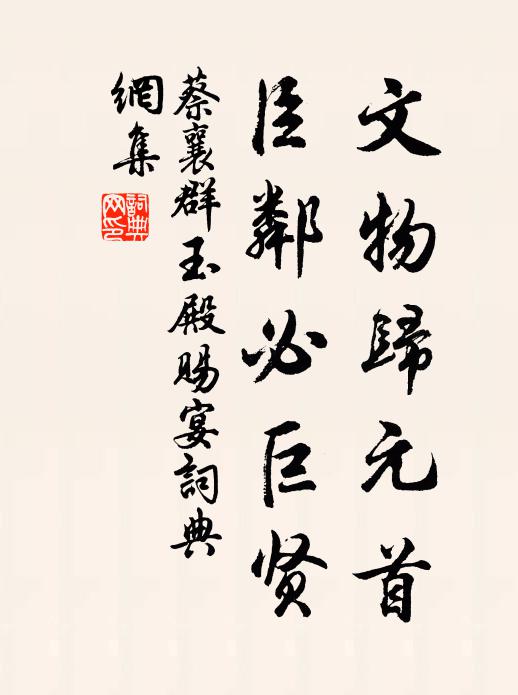 文物歸元首
臣鄰必巨贤
蔡襄群玉殿赐宴詞典
網集
詞典
网印